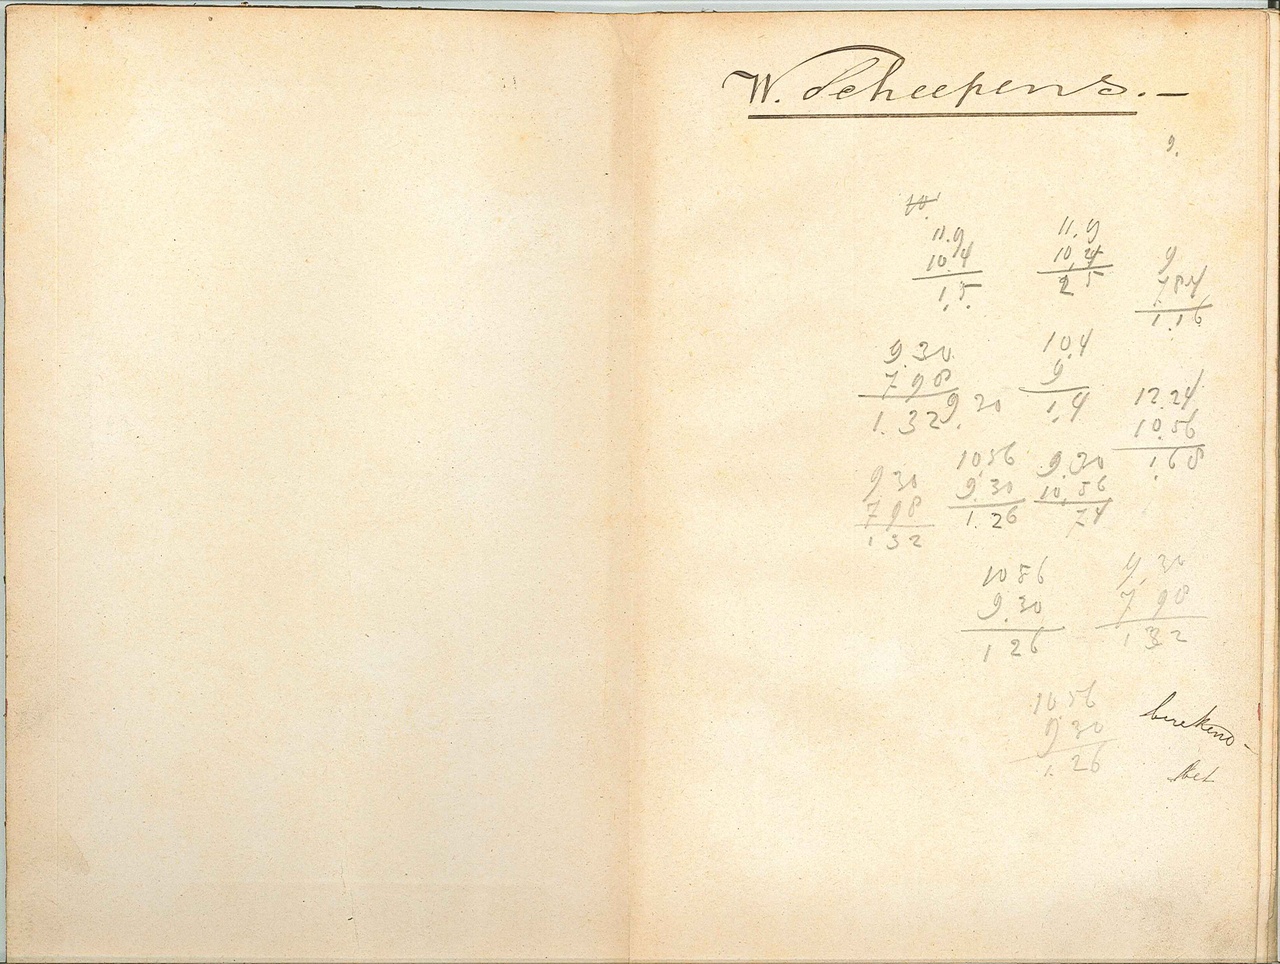 W. Scheepens. —
9.
10.
11.9
10.4
1,5.
11.9
10,4
2 5
9
784
1.16
9.30
7 98
1.32
9.20
10.4
9.
1.4
12.24
10.56
1,68
9.30
7.98
1 32
10 56
9.30
1.26
9.30
10,56
74
10 56
9.30
1 26
9.30
7 98
1 32
10 56
9 30
1. 26